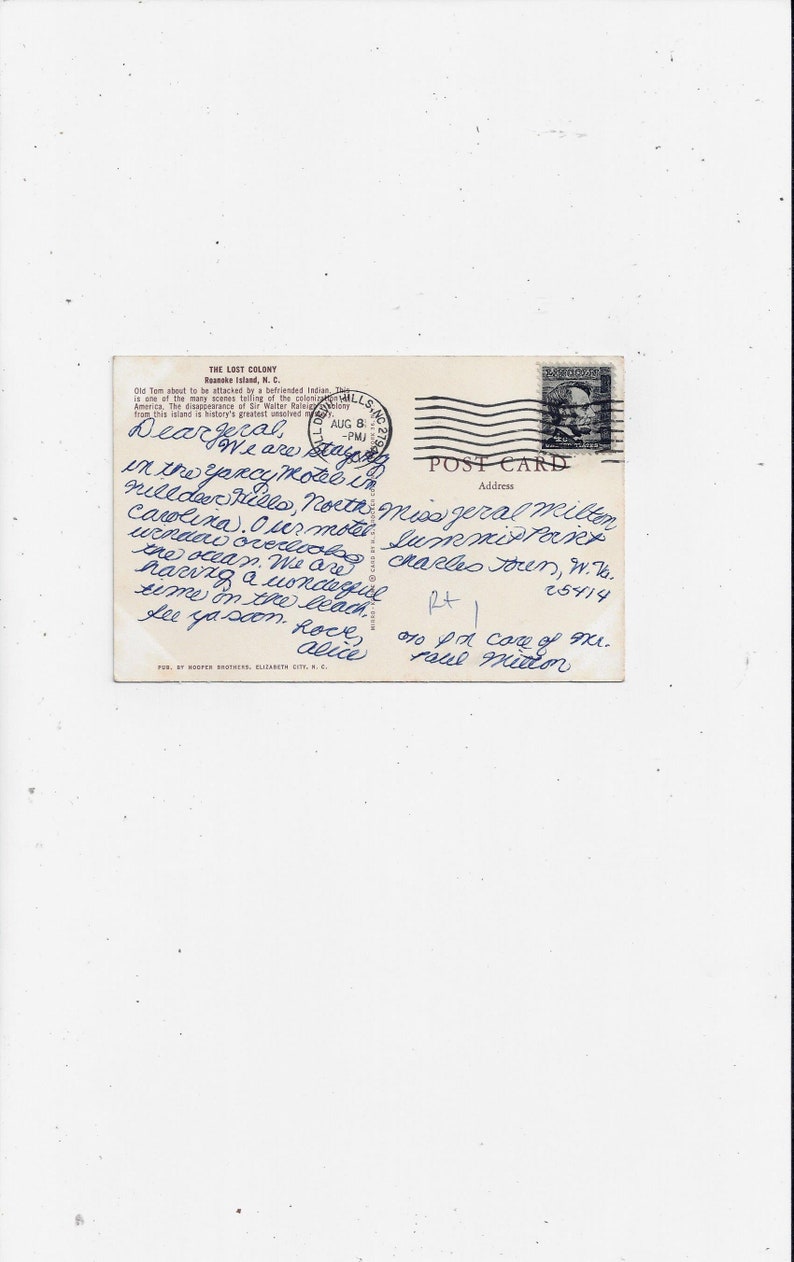 THE LOST COLONY
Roanoke Island, N. C.
Old Tom about to be attacked by a befriended Indian. This
is one of the many scenes telling of the colonization
America. The disappearance of Sir Walter Raleigh's colony
from this island is history's greatest unsolved
Dear Jeral,
We are staying
in the Yancy Motel in
Killdevr Hills, North
Carolina. Our motel
window overlooks
the ocean. We are
having a wonderful
time on the beach.
See ya soon.
Love,
Alice
PUB. BY HOOPER BROTHERS, ELIZABETH CITY, N. C.
CARD BY
KILL DEVIL HILLS, NC
AUG 8
-PM
LINCOLN
POST CARD
Address
Miss Jeral Milton
Summit Point
Charles Town, W. Va.
25414
Rt 1
c/o In Care of Mr.
Paul Milton